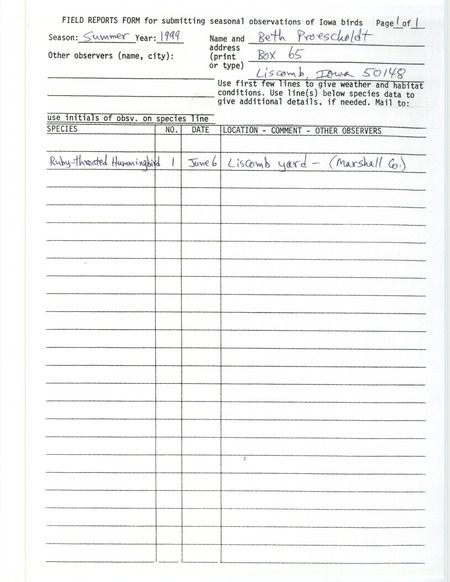 FIELD REPORTS FORM for submitting seasonal observations of Iowa birds Page 1 of 1
Season: Summer Year: 1999 Name and address (print or type) Beth Proescholdt
Other observers (name, city): Box 65
Liscomb, Iowa 50148
Use first few lines to give weather and habitat
conditions. Use line(s) below species data to
give additional details, if needed. Mail to:
use initials of obsv. on species line
SPECIES NO. DATE LOCATION - COMMENT - OTHER OBSERVERS
Ruby-throated Hummingbird 1 June 6 Liscomb yard - (Marshall Co.)